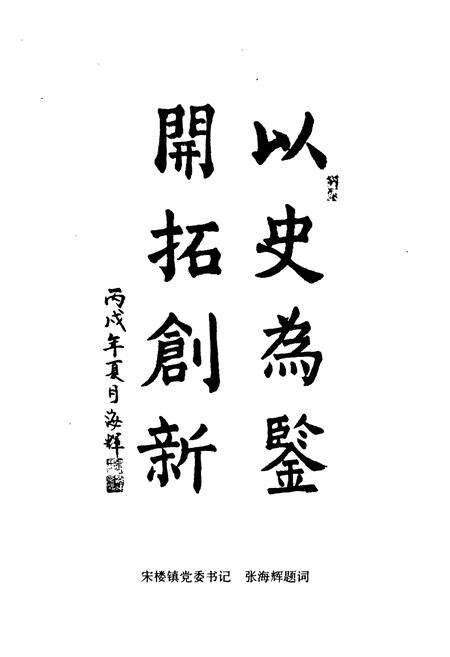 以史為鑒
開拓創新
丙戌年夏月海輝
宋楼镇党委书记 张海辉题词